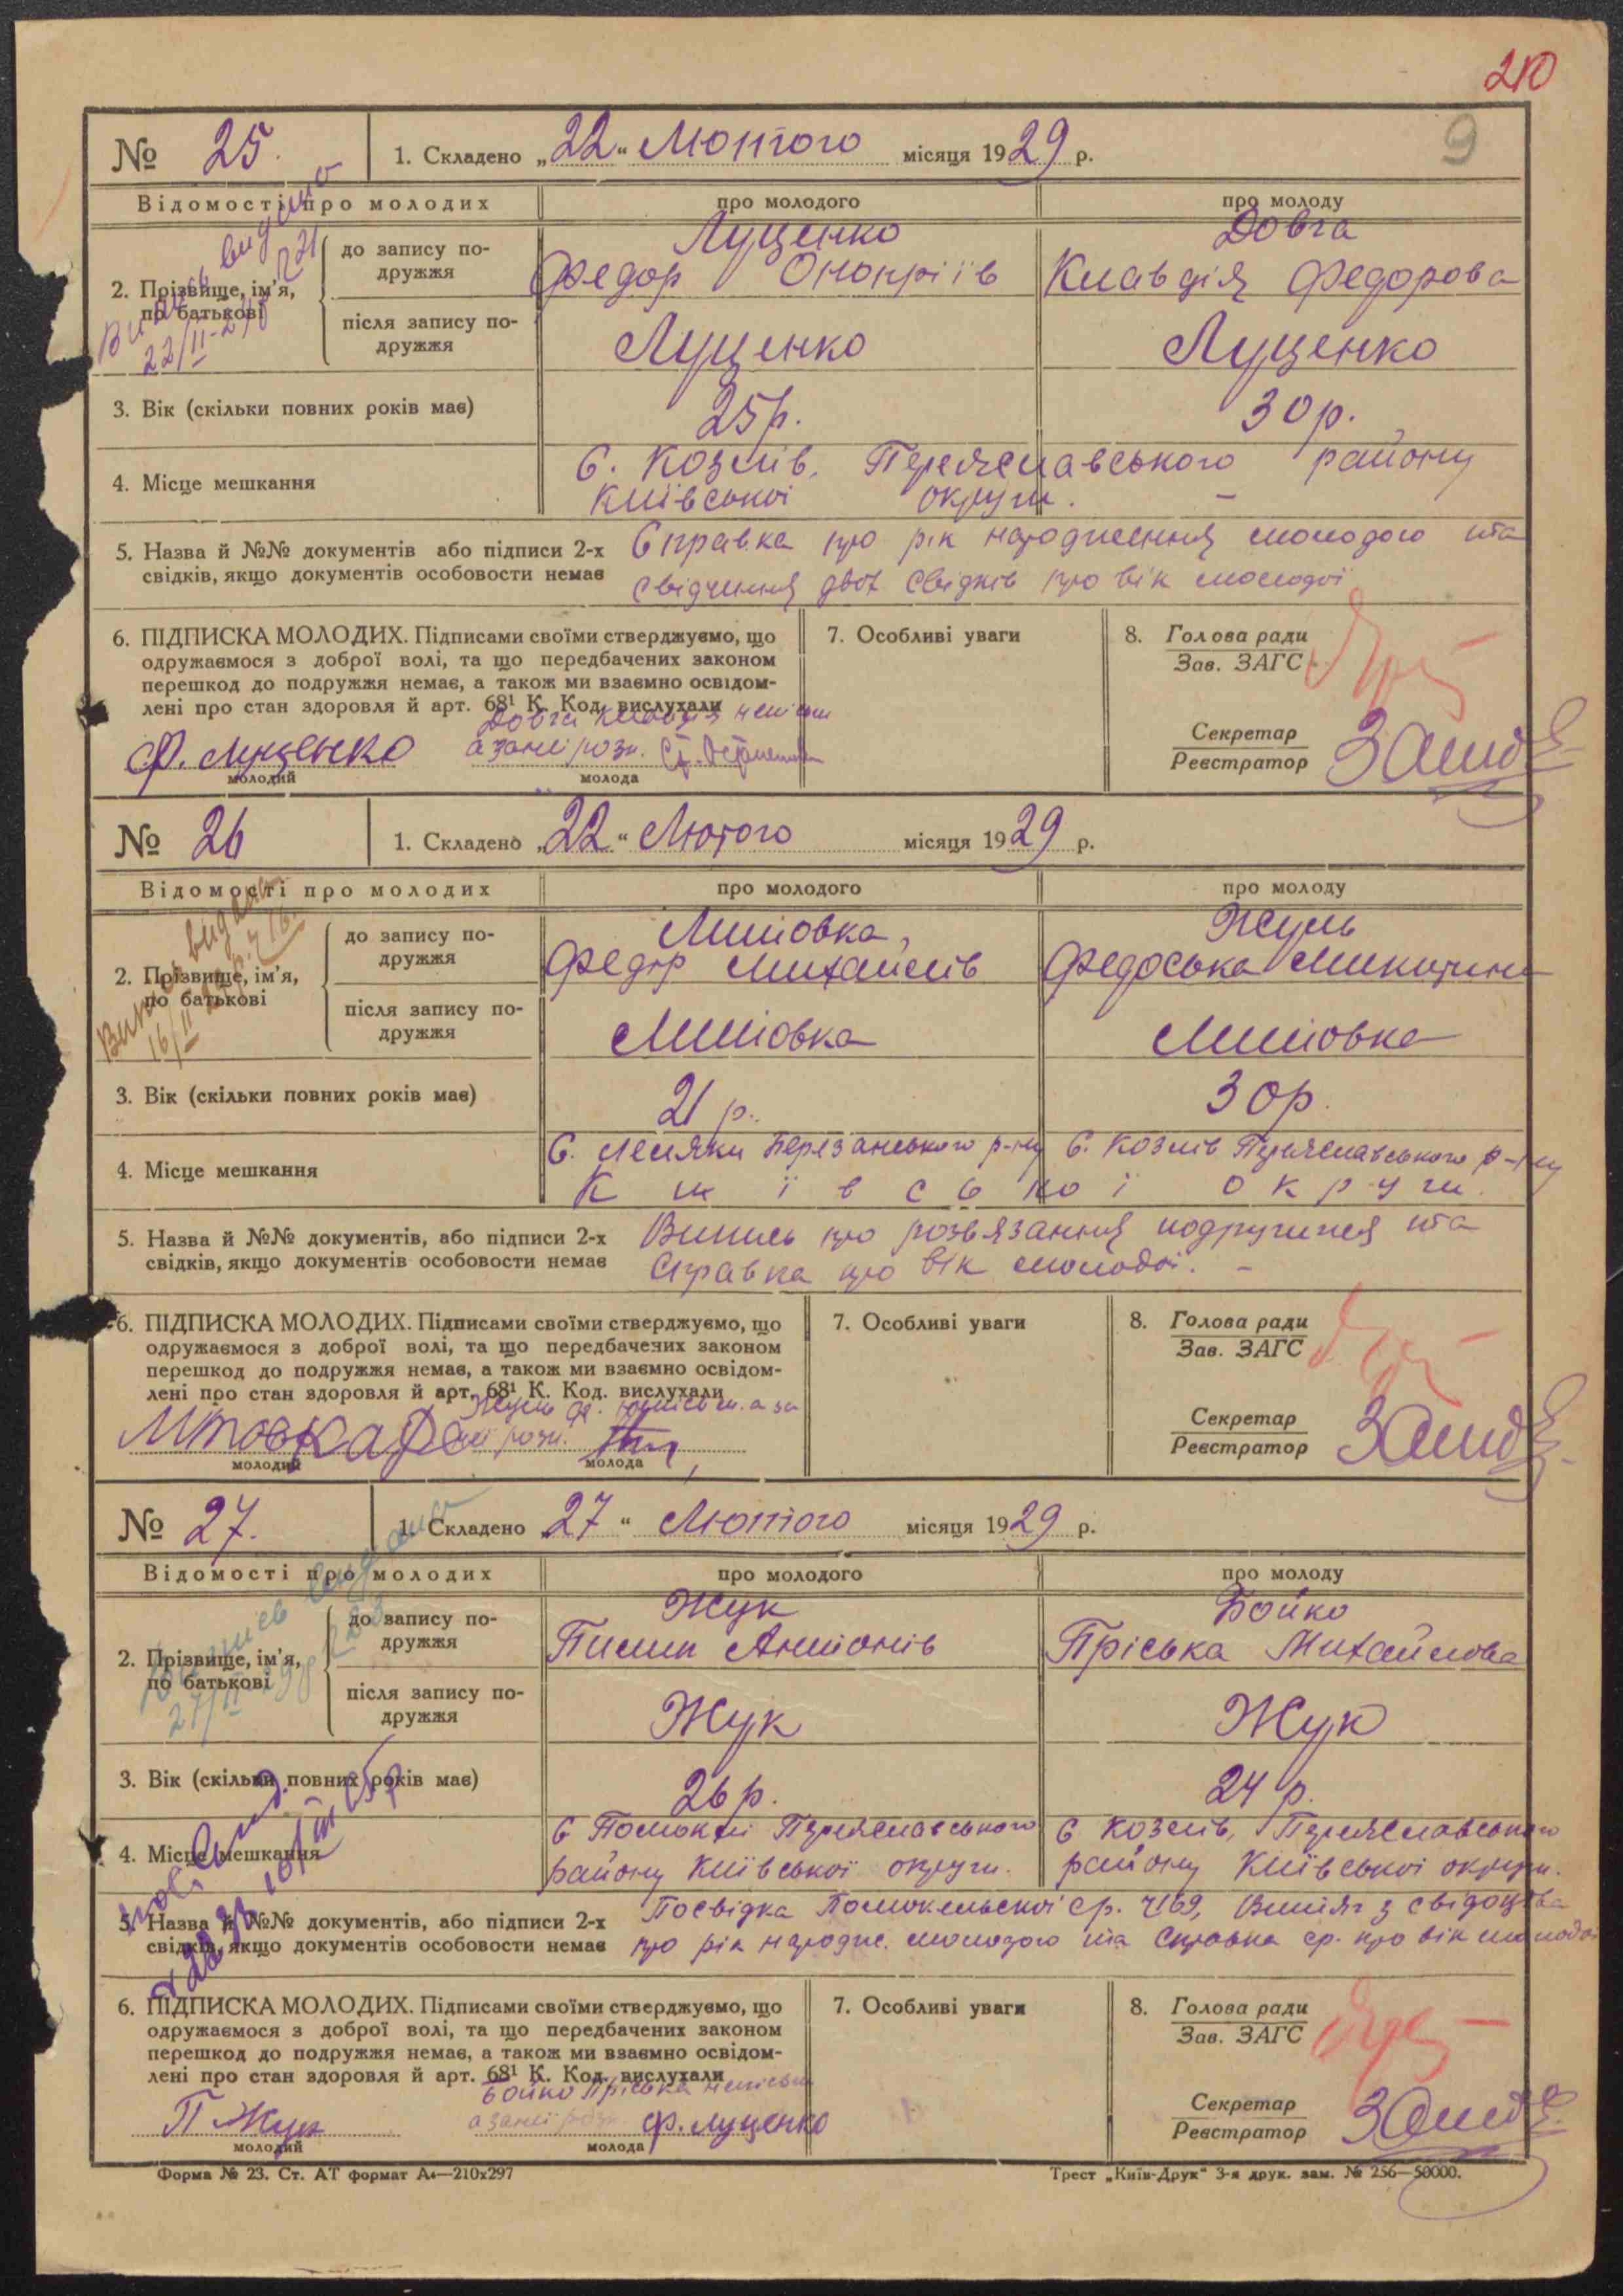 210
9
№ 25. 1. Складено „22" Лютого місяця 1929 р.
Відомості про молодих про молодого про молоду
Випись видано
22/II-29р
2. Прізвище, ім'я, по батькові
до запису подружжя
Луценко
Федор Онопріїв
Довга
Клавдія Федорова
після запису подружжя
Луценко
Луценко
3. Вік (скільки повних років має) 25р. 30р.
4. Місце мешкання
С. Козлів, Переяславського району
Київської округи.
5. Назва й №№ документів або підписи 2-х
свідків, якщо документів особовости немає
Справка про рік народження молодого та
свідчення двох свідків про вік молодої
6. ПІДПИСКА МОЛОДИХ. Підписами своїми стверджуємо, що
одружаємося з доброї волі, та що передбачених законом
перешкод до подружжя немає, а також ми взаємно освідом-
лені про стан здоровля й арт. 68¹ К. Код. вислухали
Довга Клавдія
Ф. Луценко
молодий молода
7. Особливі уваги
8. Голова ради
Зав. ЗАГС
Секретар
Реєстратор
№ 26 1. Складено „22" Лютого місяця 1929 р.
Відомості про молодих про молодого про молоду
2. Прізвище, ім'я, по батькові
до запису подружжя
Федір Михайлів
Федоська
після запису подружжя
3. Вік (скільки повних років має) 21 р. 30р.
4. Місце мешкання
С. Лемляки Березанського р-ну
С. Козлів Переяславського р-ну
Київської округи.
5. Назва й №№ документів, або підписи 2-х
свідків, якщо документів особовости немає
Випись про розвязання подружжя та
Справка про вік молодої. –
6. ПІДПИСКА МОЛОДИХ. Підписами своїми стверджуємо, що
одружаємося з доброї волі, та що передбачених законом
перешкод до подружжя немає, а також ми взаємно освідом-
лені про стан здоровля й арт. 68¹ К. Код. вислухали
молодий молода
7. Особливі уваги
8. Голова ради
Зав. ЗАГС
Секретар
Реєстратор
№ 27. 1. Складено 27 " Лютого місяця 1929 р.
Відомості про молодих про молодого про молоду
2. Прізвище, ім'я, по батькові
до запису подружжя
Жук
Пилип Антонів
Бойко
Пріська Михайлова
після запису подружжя
Жук
Жук
3. Вік (скільки повних років має) 26р. 24 р.
4. Місце мешкання
С Помоклі Переяславського
району Київської округи.
С Козлів, Переяславського
району Київської округи.
5. Назва й №№ документів, або підписи 2-х
свідків, якщо документів особовости немає
Посвідка Помокельської ср. ч169, Витяг з свідоцтва
про рік народж. молодого та Справка ср. про вік молодої
6. ПІДПИСКА МОЛОДИХ. Підписами своїми стверджуємо, що
одружаємося з доброї волі, та що передбачених законом
перешкод до подружжя немає, а також ми взаємно освідом-
лені про стан здоровля й арт. 68¹ К. Код. вислухали
Бойко Пріська
П Жук Ф. Луценко
молодий молода
7. Особливі уваги
8. Голова ради
Зав. ЗАГС
Секретар
Реєстратор
Форма № 23. Ст. АТ формат А₄—210x297
Трест „Київ-Друк" 3-я друк. зам. № 256—50000.